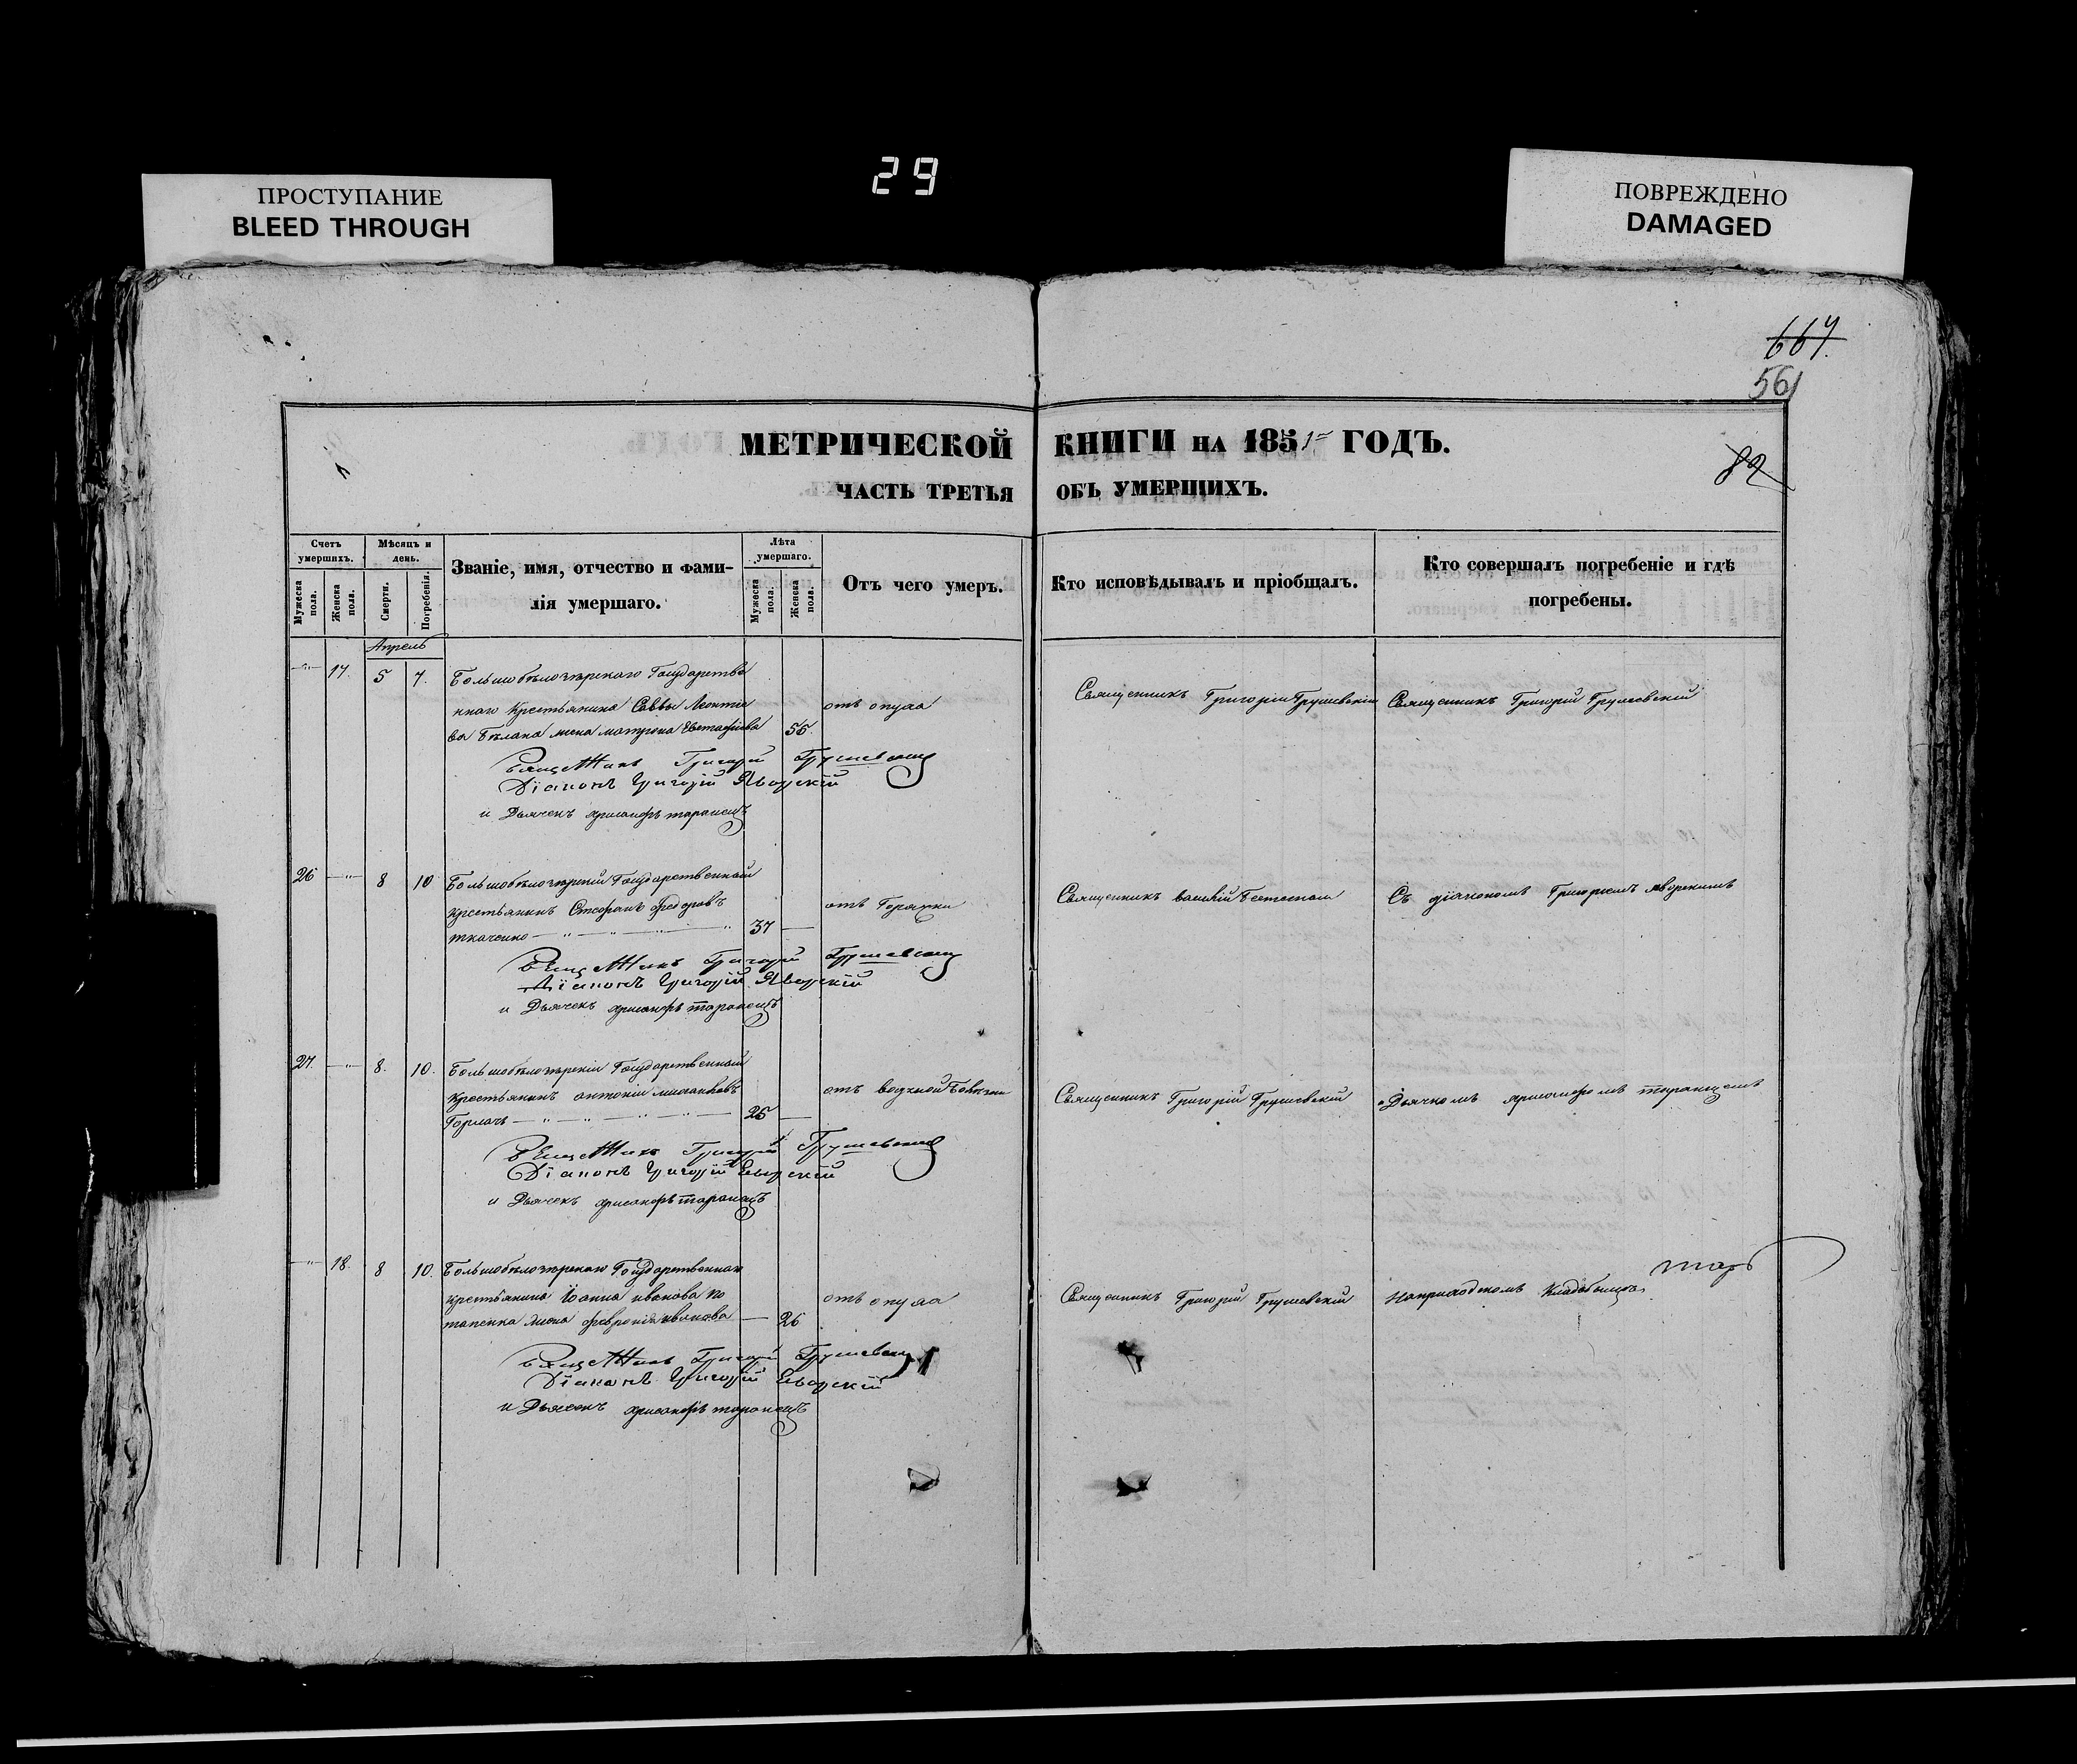 29
ПРОСТУПАНИЕ
BLEED THROUGH
ПОВРЕЖДЕНО
DAMAGED
667.
561
82
МЕТРИЧЕСКОЙ КНИГИ НА 1851 ГОДЪ.
ЧАСТЬ ТРЕТЬЯ ОБЪ УМЕРШИХЪ.
Счетъ умершихъ.
Мужеска пола.
Женска пола.
Мѣсяцъ и день.
Смерти.
Погребенія.
Званіе, имя, отчество и фами-
лія умершаго.
Лѣта умершаго.
Мужеска пола.
Женска пола.
Отъ чего умеръ.
Кто исповѣдывалъ и пріобщалъ.
Кто совершалъ погребеніе и гдѣ
погребены.
Апрель
17. 5 7. Большобѣлозѣрскаго Государстве
ннаго Крестьянина Саввы Леонтіе отъ опуха Священникъ Григорій Грушевскій Священникъ Григорій Грушевскій
ва Бѣлана жена матрона Евстафіева 55.
Григорій Грушевскій
Діаконъ Григорій Яворскій
и Дьячекъ хрисанфъ таранецъ
26 8 10 Большобѣлозѣрскій Государственный
крестьянинъ Стефанъ федоровъ отъ Горячки Священникъ василій Съ діакономъ Григоріемъ яворскимъ
ткаченко 37
Григорій Грушевскій
Діаконъ Григорій Яворскій
и Дьячекъ хрисанфъ таранецъ
27. 8. 10. Большобѣлозѣрскій Государственный
Крестьянинъ антоній отъ Священникъ Григорій Грушевскій Дьячкомъ хрисанфомъ таранцемъ
Горлачъ 25
Григорій Грушевскій
Діаконъ Григорій Яворскій
и Дьячекъ хрисанфъ таранецъ
18. 8 10. Большобѣлозѣрскаго Государственнаго
крестьянина Іоанна иванова по отъ опуха Священникъ Григорій Грушевскій На приходскомъ Кладбищѣ
тапенка жена февронія иванова 26
Григорій Грушевскій
Діаконъ Григорій Яворскій
и Дьячекъ хрисанфъ таранецъ